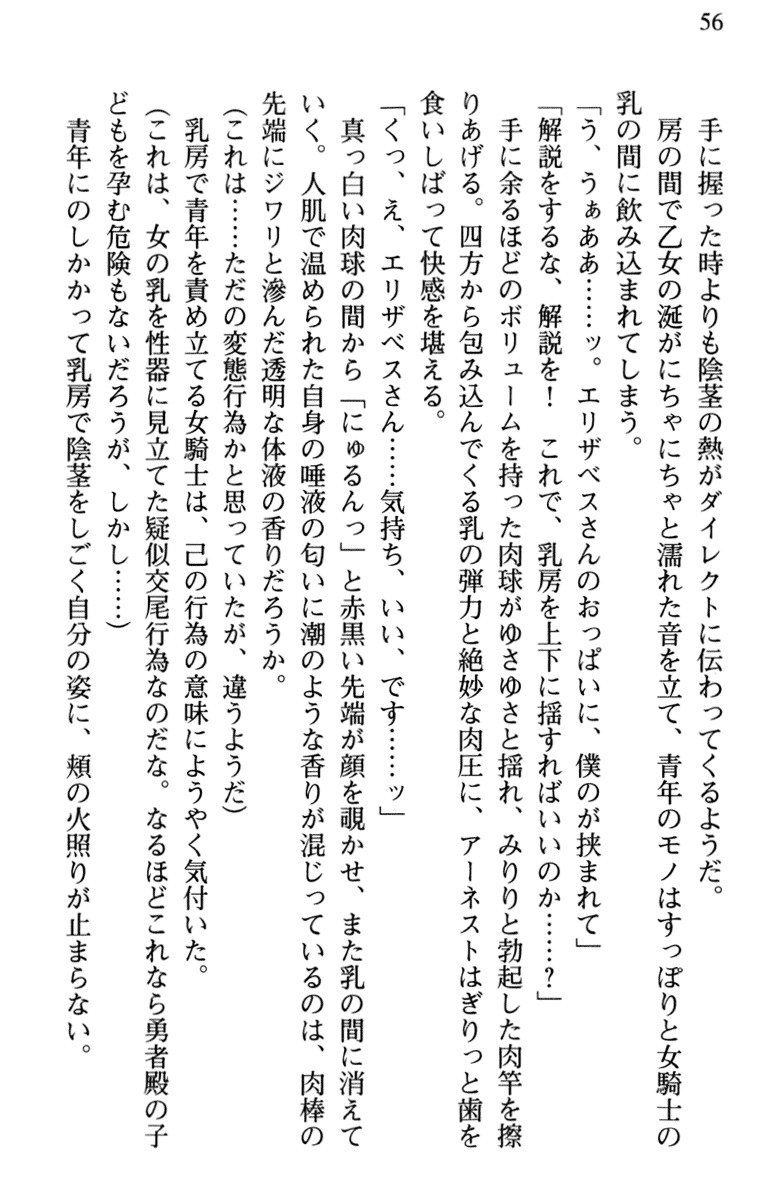 56
手に握った時よりも陰茎の熱がダイレクトに伝わってくるようだ。
房の間で乙女の涎がにちゃにちゃと濡れた音を立て、青年のモノはすっぽりと女騎士の
乳の間に飲み込まれてしまう。
「う、うぁああ……ッ。エリザベスさんのおっぱいに、僕のが挟まれて」
「解説をするな、解説を！　これで、乳房を上下に揺すればいいのか……？」
手に余るほどのボリュームを持った肉球がゆさゆさと揺れ、みりりと勃起した肉竿を擦
りあげる。四方から包み込んでくる乳の弾力と絶妙な肉圧に、アーネストはぎりっと歯を
食いしばって快感を堪える。
「くっ、え、エリザベスさん……気持ち、いい、です……ッ」
真っ白い肉球の間から「にゅるんっ」と赤黒い先端が顔を覗かせ、また乳の間に消えて
いく。人肌で温められた自身の唾液の匂いに潮のような香りが混じっているのは、肉棒の
先端にジワリと滲んだ透明な体液の香りだろうか。
（これは……ただの変態行為かと思っていたが、違うようだ）
乳房で青年を責め立てる女騎士は、己の行為の意味にようやく気付いた。
（これは、女の乳を性器に見立てた疑似交尾行為なのだな。なるほどこれなら勇者殿の子
どもを孕む危険もないだろうが、しかし……）
青年にのしかかって乳房で陰茎をしごく自分の姿に、頬の火照りが止まらない。